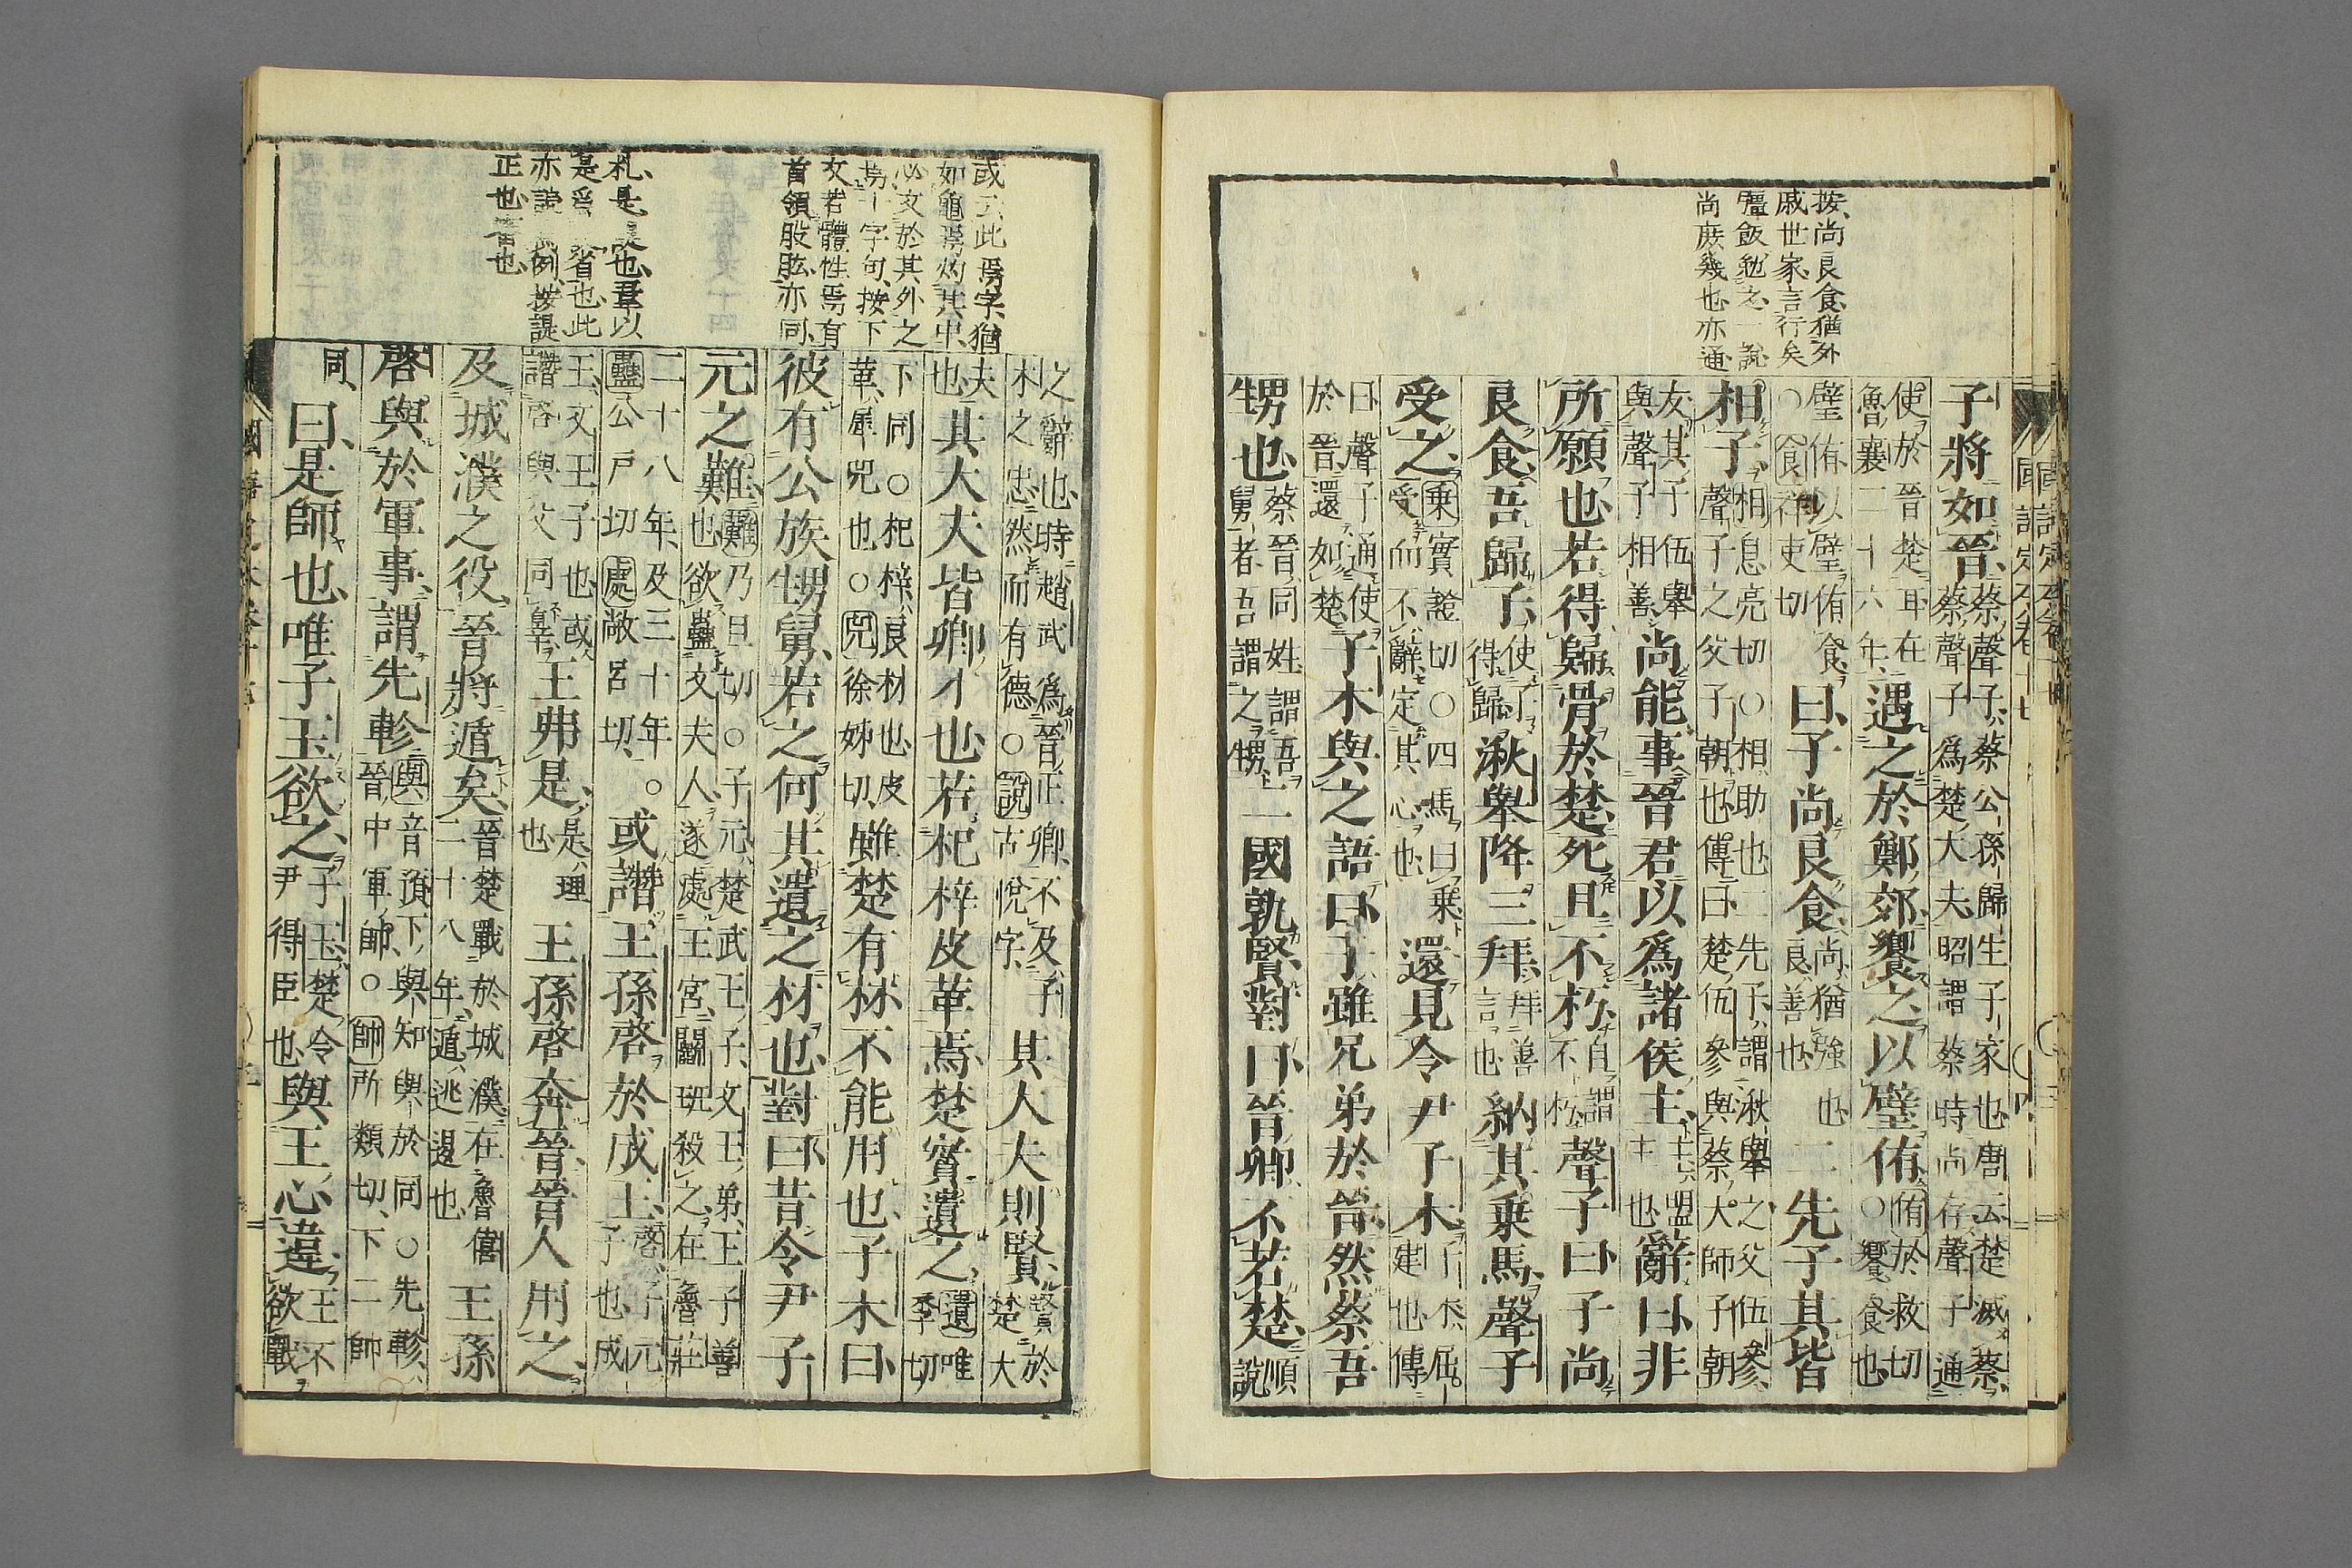 按尚良食猶外
戚世家言行矣
彊飯勉之一說
尚庶幾也亦通
子將如晉蔡聲子蔡公孫歸生子家也唐云楚滅蔡蔡聲子爲楚大夫昭謂蔡時尚存聲子通
使於晉楚耳在魯襄二十六年遇之於鄭郊饗之以璧侑侑於救切○饗食也
璧侑以璧侑食○食祥吏切曰子尚良食尚猶強也良善也二先子其皆
相子相息亮切○相助也二先子謂湫舉之父伍參聲子之父子朝也傳曰楚伍參與蔡大師子朝
友其子伍舉與聲子相善尚能事晉君以爲諸侯主主盟主也辭曰非
所願也若得歸骨於楚死且不朽自謂不朽聲子曰子尚
良食吾歸子使子得歸湫舉降三拜拜善言也納其乗馬聲子
受之乗實證切○四馬曰乗受而不辭定其心也還見令尹子木子木屈建也傳
曰聲子通使於晉還如楚子木與之語曰子雖兄弟於晉然蔡吾
甥也蔡晉同姓謂吾舅者吾謂之甥二國孰賢對曰晉卿不若楚順說
之辭也時趙武爲晉正卿不及子木之忠然而有德○說古悅字其大夫則賢賢於楚大
夫也其大夫皆卿才也若杞梓皮革焉楚實遺之遺唯季切
下同○杞梓良材也皮革犀兕也○兕徐姊切雖楚有材不能用也子木曰
彼有公族甥舅若之何其遺之材也對曰昔令尹子
元之難難乃旦切○子元楚武王子文王弟王子善也欲蠱文夫人遂處王宮鬭班殺之在魯莊
二十八年及三十年○蠱公戸切處敞呂切或譖王孫啓於成王啓子元子也成
王文王子也或譖啓與父同辠王弗是是理也王孫啓奔晉晉人用之
及城濮之役晉將遁矣晉楚戰於城濮在魯僖二十八年遁逃退也王孫
啓與於軍事謂先軫與音預下與知與於同○先軫晉中軍帥○帥所類切下二帥
同曰是師也唯子玉欲之子玉楚令尹得臣也與王心違王不欲戰
或云此焉字猶
如龜焉灼其中
必文於其外之
焉十字句按下
文若體性焉有
首領股肱亦同